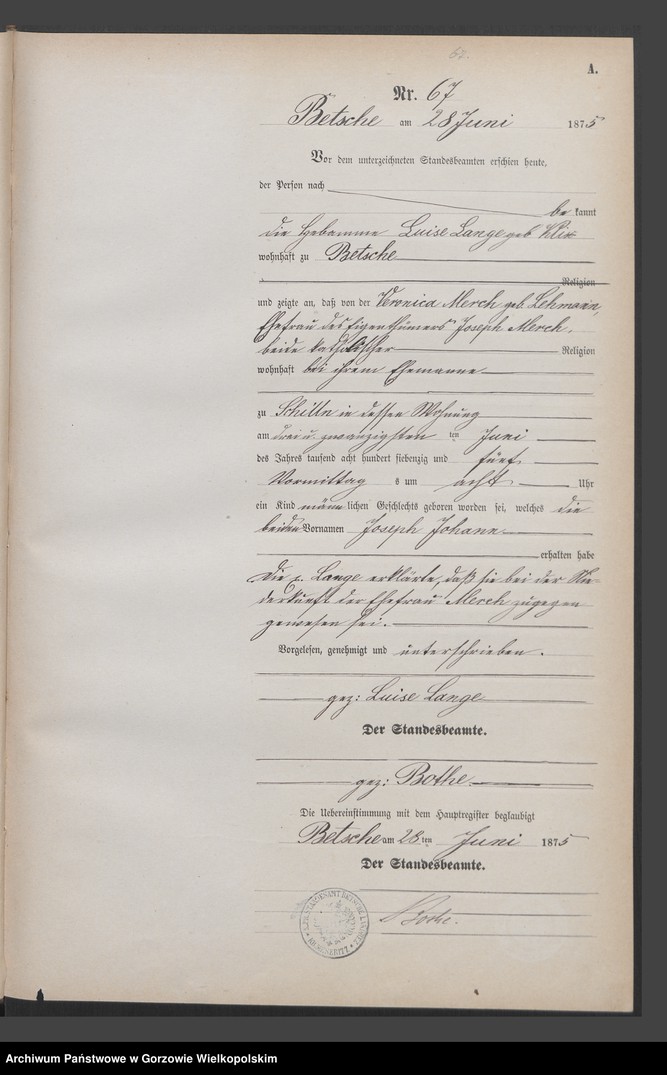 67.
A.
Nr. 67
Betsche am 28 Juni 1875
Vor dem unterzeichneten Standesbeamten erschien heute,
der Person nach
be kannt
die Hebamme Luise Lange geb. Klix
wohnhaft zu Betsche
Religion
und zeigte an, daß von der Veronica Merch geb. Lehmann,
Ehefrau des Eigenthümers Joseph Merch,
beide katholischer Religion
wohnhaft bei ihrem Ehemanne
zu Schilln in dessen Wohnung
am drei u. zwanzigsten ten Juni
des Jahres tausend acht hundert siebenzig und fünf
Vormittag s um acht Uhr
ein Kind männlichen Geschlechts geboren worden sei, welches die
beiden Vornamen Joseph Johann
erhalten habe
Die p. Lange erklärte, daß sie bei der Nie-
derkunft der Ehefrau Merch zugegen
gewesen sei.
Vorgelesen, genehmigt und unterschrieben.
gez: Luise Lange
Der Standesbeamte.
gez: Bothe
Die Uebereinstimmung mit dem Hauptregister beglaubigt
Betsche am 28 ten Juni 1875
Der Standesbeamte.
Bothe.
Archiwum Państwowe w Gorzowie Wielkopolskim